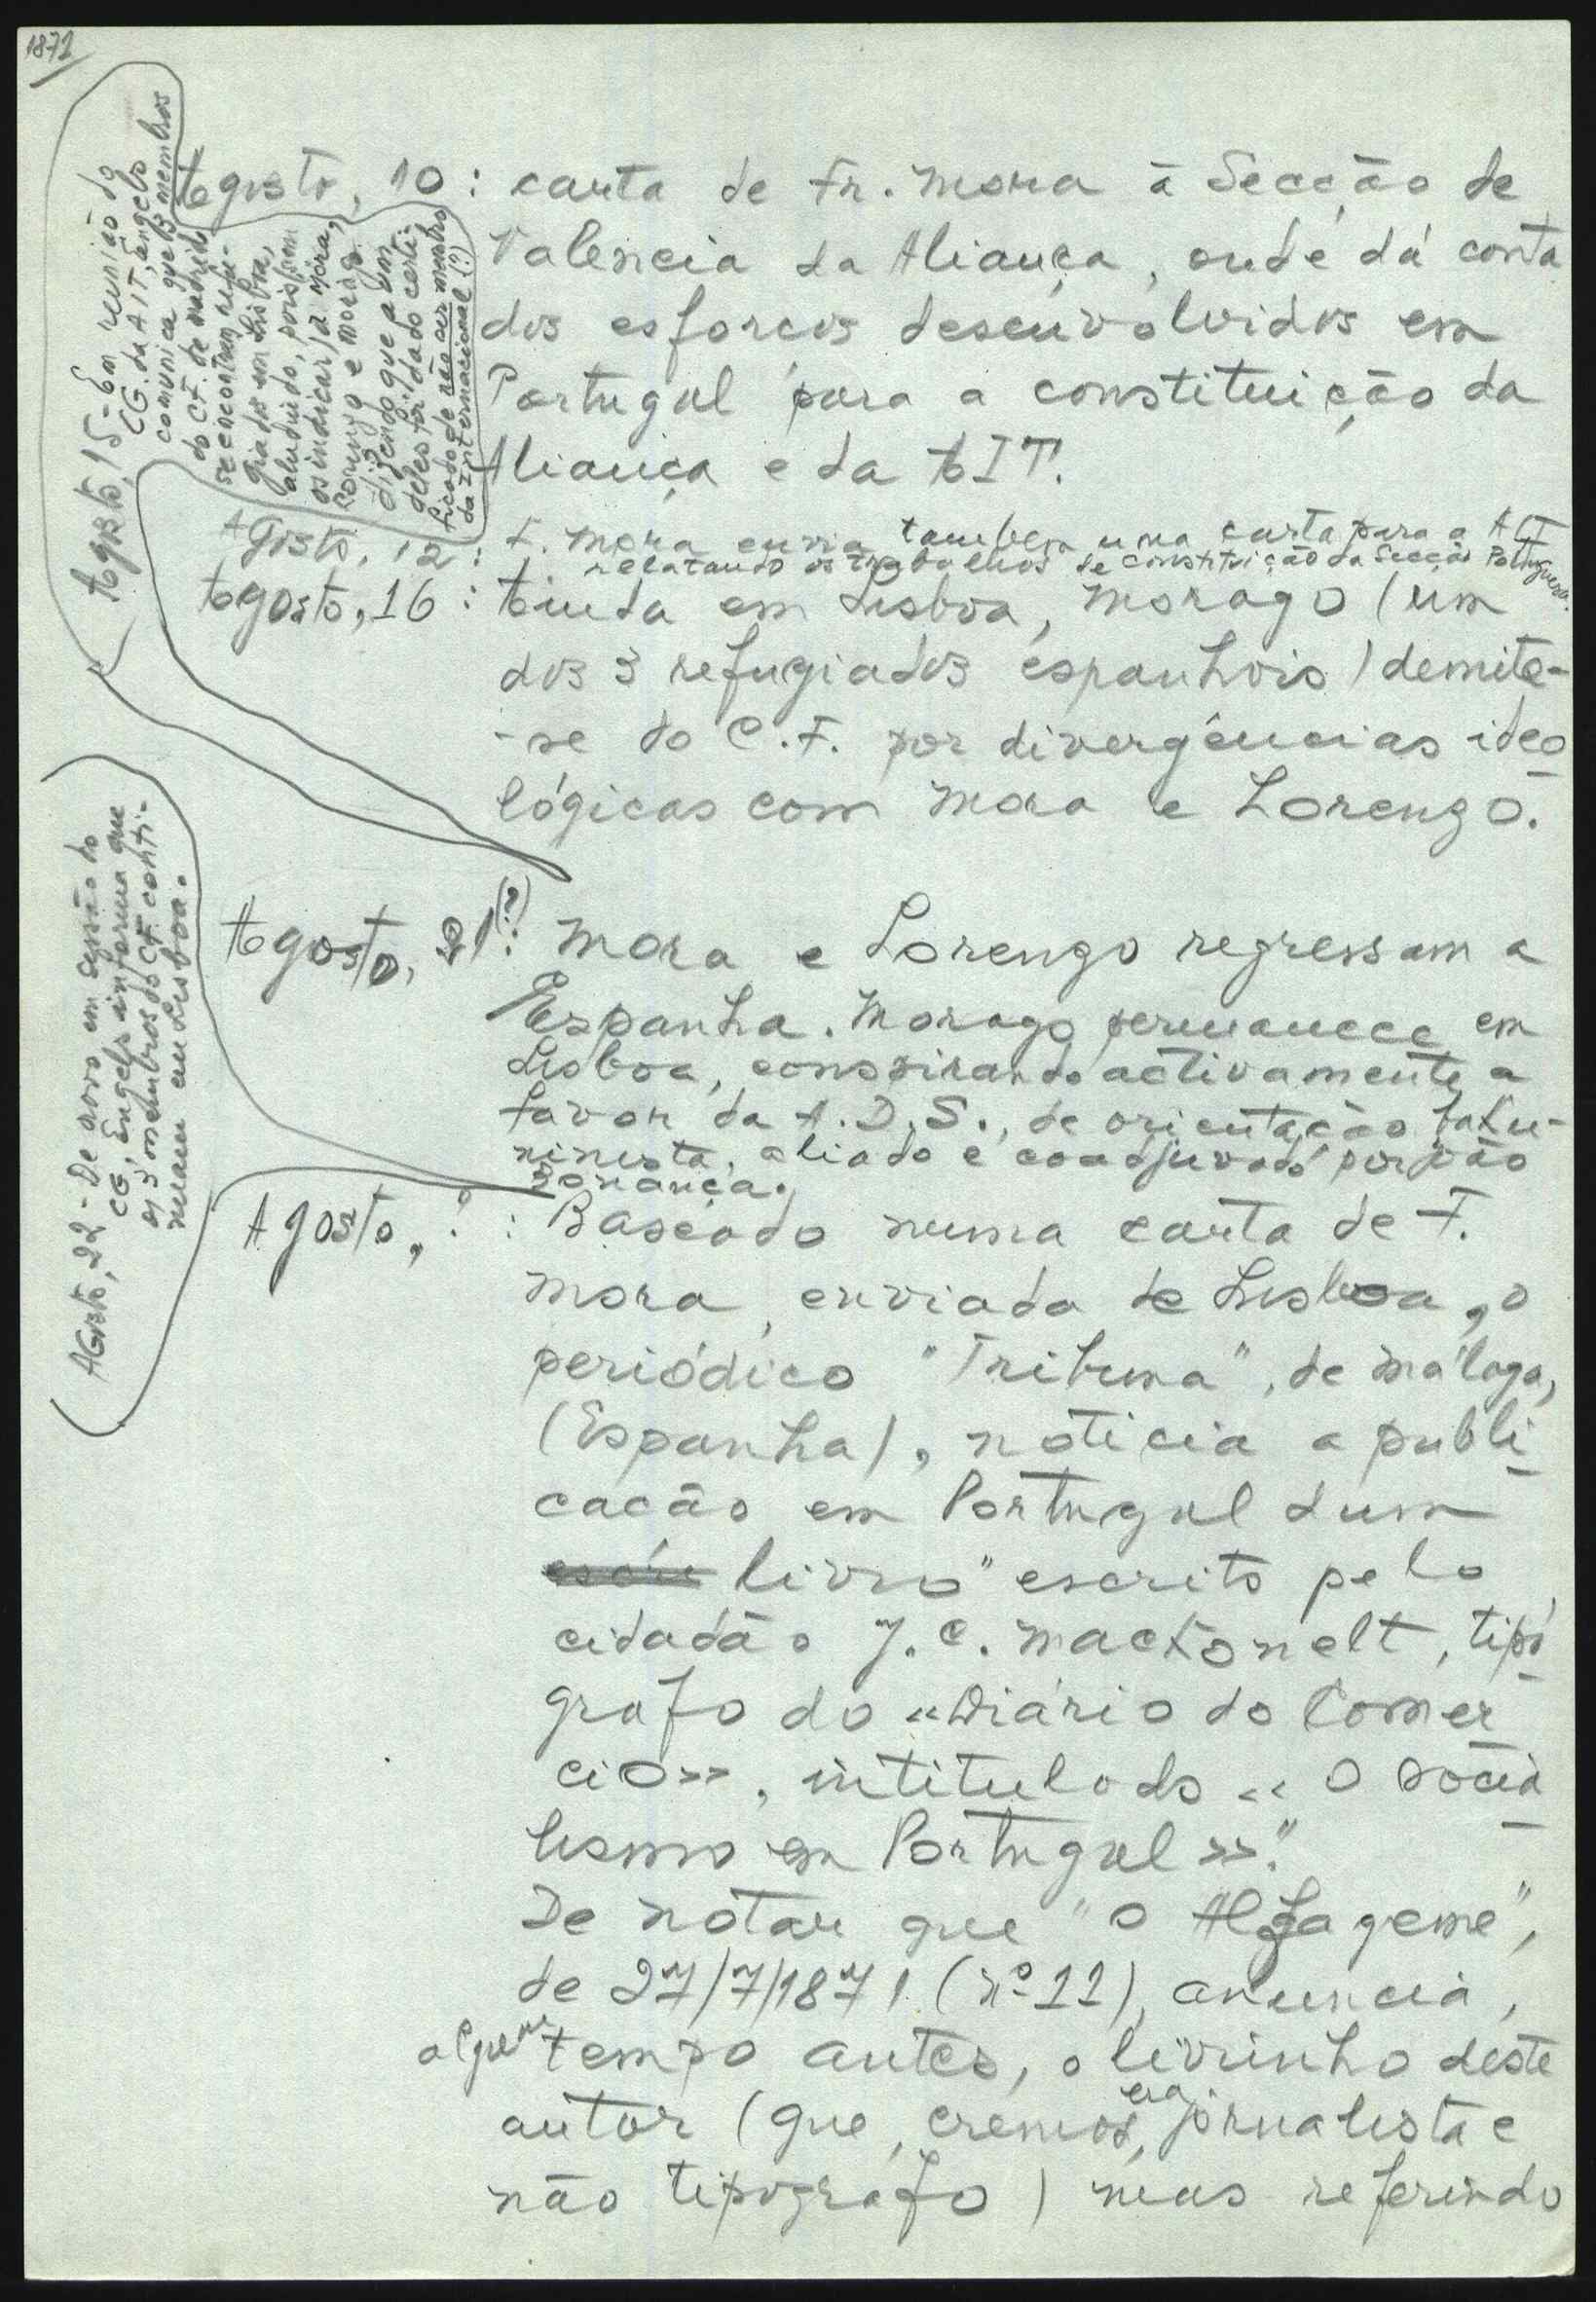 1871
Agosto, 10 : carta de Fr. Mora à Secção de
Valencia da Aliança, onde dá conta
dos esforços desenvolvidos em
Portugal para a constituição da
Aliança e da AIT.
Agosto, 12 : F. Mora envia também uma carta para a AIT
relatando os trabalhos de constituição da Secção Portuguesa.
Agosto, 15 - Em reunião do
CG. da AIT, Engels
comunica que 3 membros
do CF. de Madrid
se encontram refu-
giados em Lisboa,
aludindo, pois, sem
os indicar, a Mora,
Lorenzo e Morago
dizendo que a um
deles foi dado certi-
ficado de não ser membro
da Internacional (?)
Agosto, 16 : Ainda em Lisboa, Morago (um
dos 3 refugiados espanhois) demite-
-se do C.F. por divergências ideo
lógicas com Mora e Lorenzo.
Agosto, 21(?): Mora e Lorenzo regressam a
Espanha. Morago permanece em
Lisboa, conspirando activamente a
favor da A.D.S., de orientação baku-
ninista, aliado e coadjuvado por João
Bonança.
Agosto, 22 - De novo em sessão do
CG, Engels informa que
os 3 membros do CF. conti-
nuam em Lisboa.
Agosto, ? : Baseado numa carta de F.
Mora, enviada de Lisboa, o
periódico "Tribuna", de Málaga,
(Espanha), noticia a publi
cacão em Portugal dum
livro "escrito pelo
cidadão J. C. Mactonelt, tipó
grafo do «Diário do Comer
cio», intitulado « O socia
lismo em Portugal »."
De notar que "O Alfageme",
de 27/7/1871 (nº 11), anuncia,
algum tempo antes, o livrinho deste
autor (que, cremos, era jornalista e
não tipógrafo) mas referindo